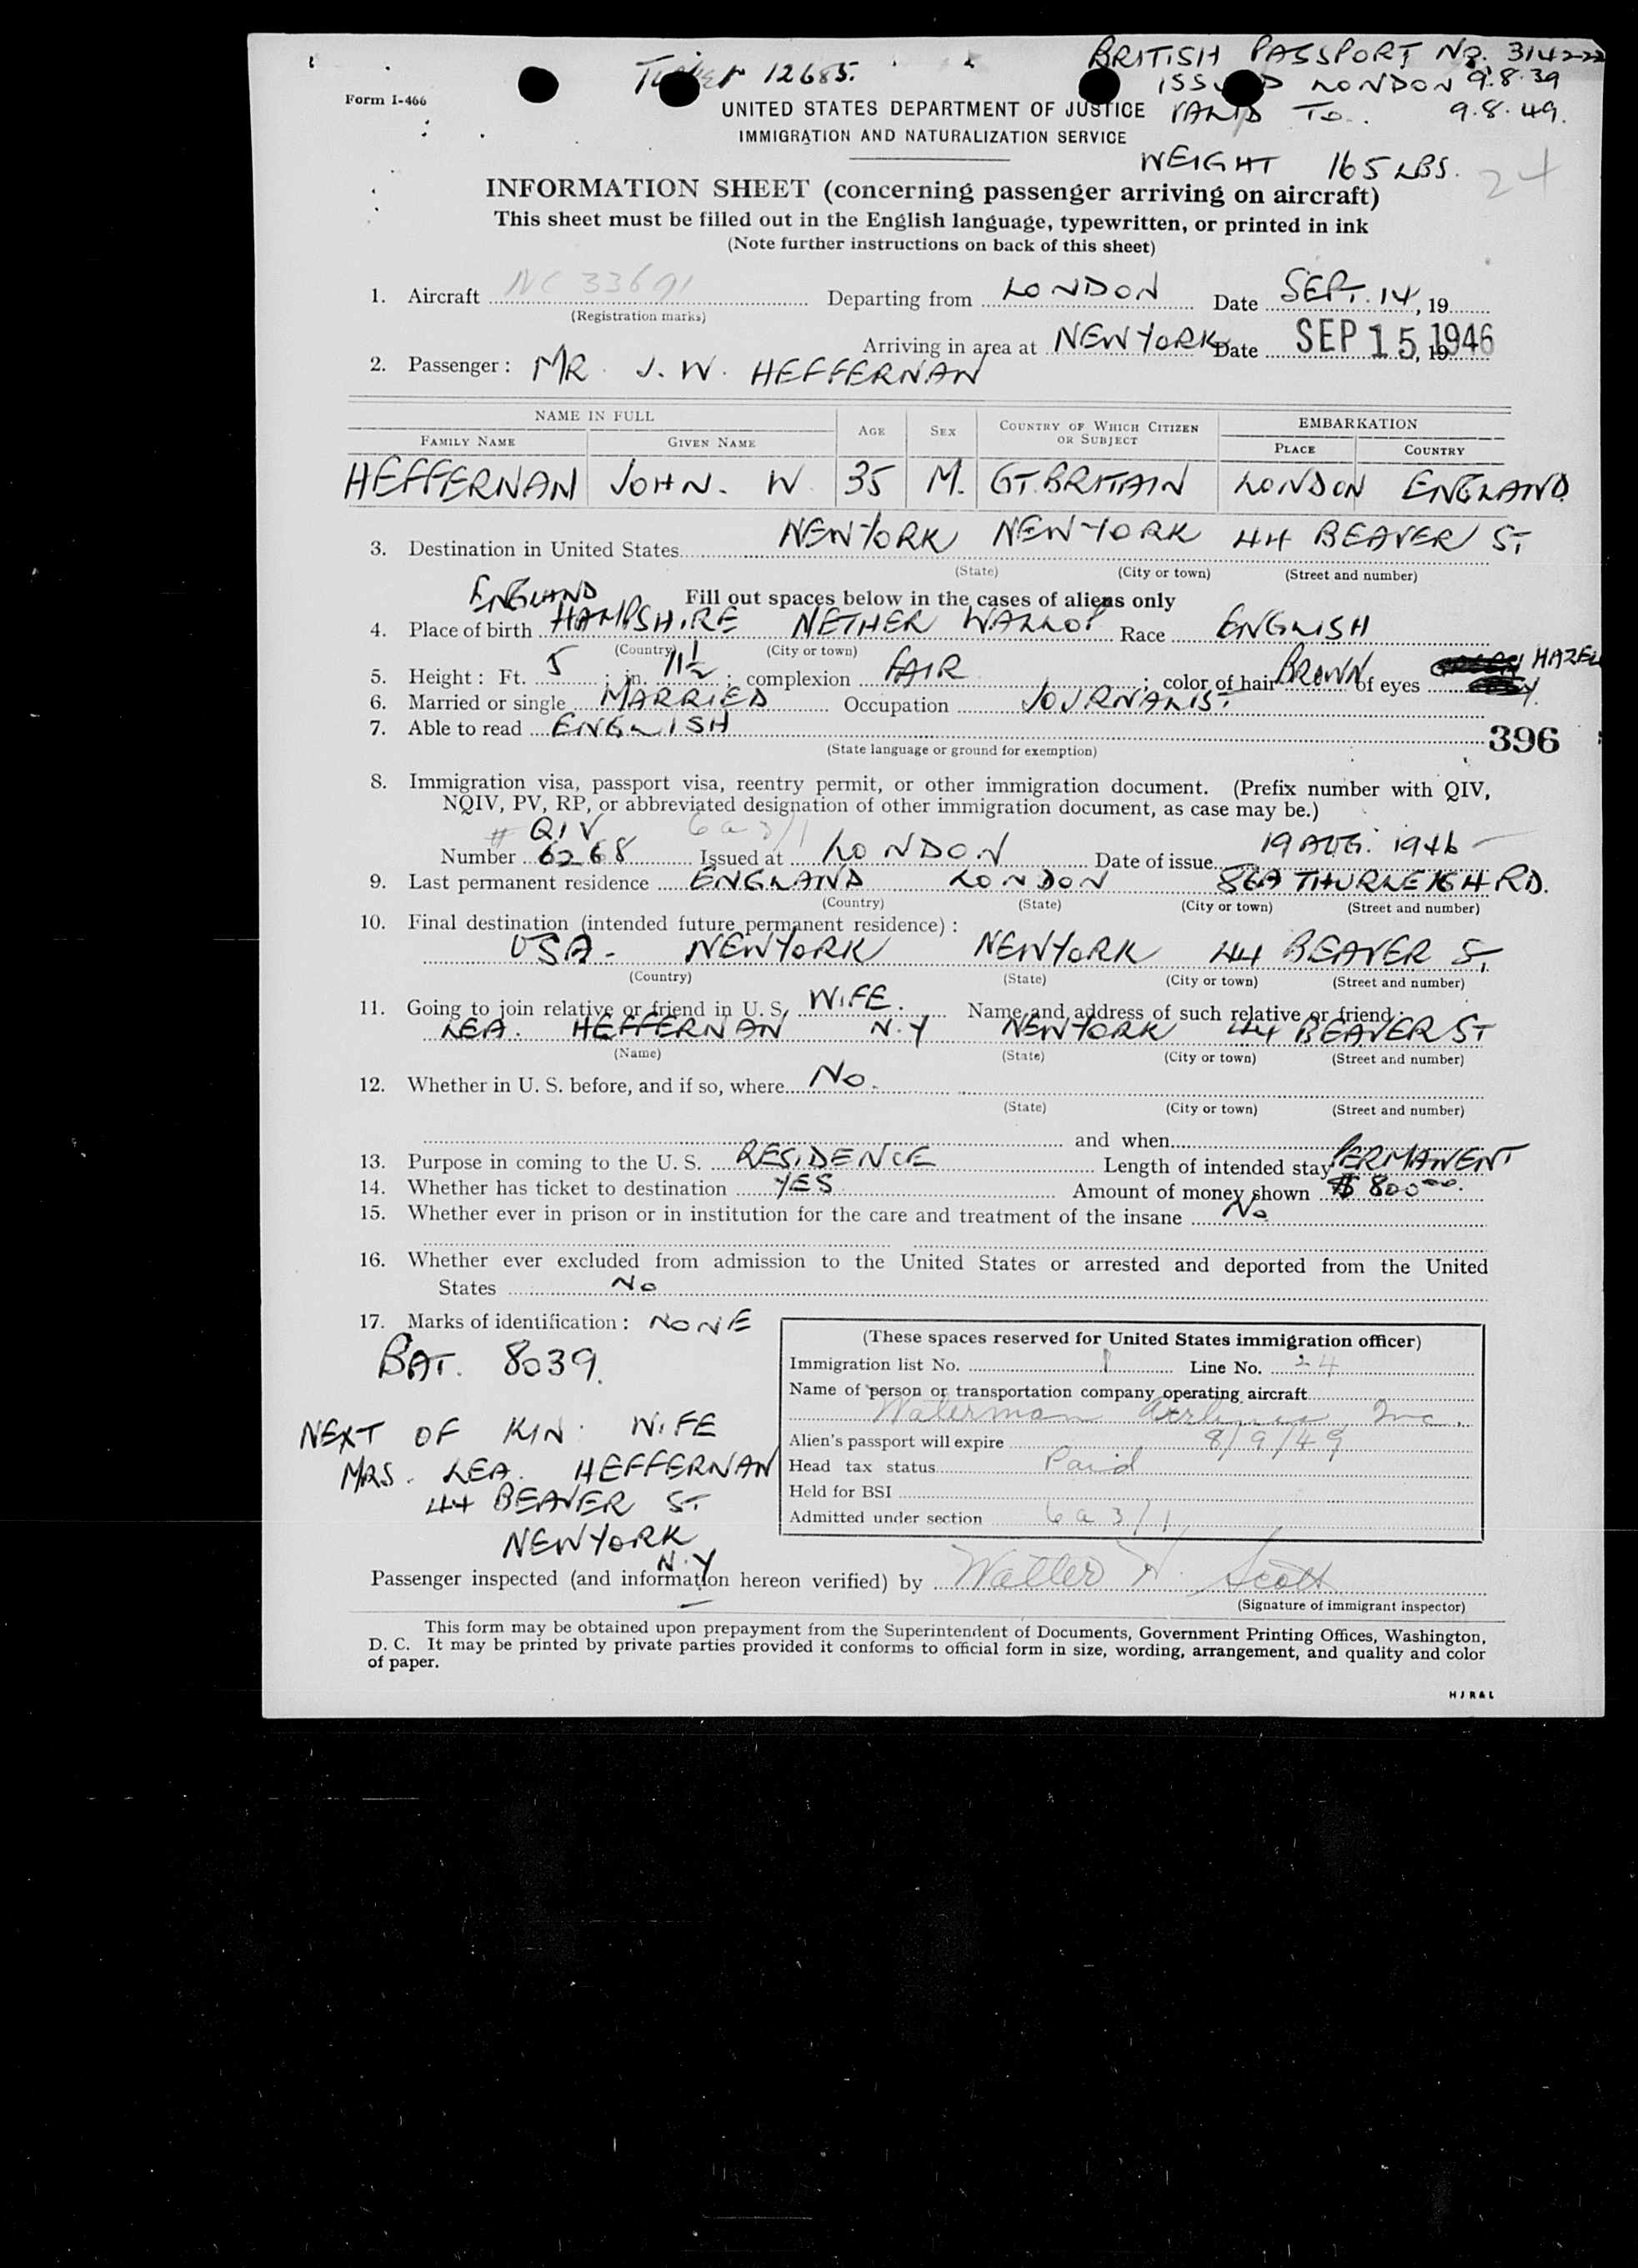 12685.
BRITISH PASSPORT No. 314222
ISSUED LONDON 9.8.39
VALID To. 9.8.49.
Form I-466
UNITED STATES DEPARTMENT OF JUSTICE
IMMIGRATION AND NATURALIZATION SERVICE
WEIGHT 165 LBS. 24
INFORMATION SHEET (concerning passenger arriving on aircraft)
This sheet must be filled out in the English language, typewritten, or printed in ink
(Note further instructions on back of this sheet)
1. Aircraft NC 33691 Departing from LONDON Date SEPT. 14, 19
(Registration marks)
Arriving in area at NEW YORK Date SEP 15, 1946
2. Passenger: MR. J. W. HEFFERNAN
NAME IN FULL AGE SEX COUNTRY OF WHICH CITIZEN OR SUBJECT EMBARKATION
FAMILY NAME GIVEN NAME PLACE COUNTRY
HEFFERNAN JOHN. W 35 M. GT. BRITAIN LONDON ENGLAND
3. Destination in United States NEW YORK NEW YORK 44 BEAVER ST
(State) (City or town) (Street and number)
ENGLAND Fill out spaces below in the cases of aliens only
4. Place of birth HAMPSHIRE NETHER WALLOP Race ENGLISH
(Country) (City or town)
5. Height: Ft. 5; in. 11½; complexion FAIR; color of hair BROWN of eyes HAZEL
6. Married or single MARRIED Occupation JOURNALIST
7. Able to read ENGLISH 396
(State language or ground for exemption)
8. Immigration visa, passport visa, reentry permit, or other immigration document. (Prefix number with QIV,
NQIV, PV, RP, or abbreviated designation of other immigration document, as case may be.)
# QIV 6a3/1
Number 6268 Issued at LONDON Date of issue 19 AUG. 1946
9. Last permanent residence ENGLAND LONDON 86A THURLEIGH RD.
(Country) (State) (City or town) (Street and number)
10. Final destination (intended future permanent residence):
USA. NEW YORK NEW YORK 44 BEAVER ST
(Country) (State) (City or town) (Street and number)
11. Going to join relative or friend in U. S. WIFE. Name and address of such relative or friend:
LEA. HEFFERNAN N.Y NEW YORK 44 BEAVER ST
(Name) (State) (City or town) (Street and number)
12. Whether in U. S. before, and if so, where No.
(State) (City or town) (Street and number)
and when
13. Purpose in coming to the U. S. RESIDENCE Length of intended stay PERMANENT
14. Whether has ticket to destination YES Amount of money shown $ 800.00
15. Whether ever in prison or in institution for the care and treatment of the insane No
16. Whether ever excluded from admission to the United States or arrested and deported from the United
States No
17. Marks of identification: NONE
BAT. 8039.
NEXT OF KIN. WIFE
MRS. LEA. HEFFERNAN
44 BEAVER ST
NEW YORK
N.Y
(These spaces reserved for United States immigration officer)
Immigration list No. 1 Line No. 24
Name of person or transportation company operating aircraft
Waterman Airlines Inc.
Alien's passport will expire 8/9/49
Head tax status Paid
Held for BSI
Admitted under section 6a3/1
Passenger inspected (and information hereon verified) by Walter H. Scott
(Signature of immigrant inspector)
This form may be obtained upon prepayment from the Superintendent of Documents, Government Printing Offices, Washington,
D. C. It may be printed by private parties provided it conforms to official form in size, wording, arrangement, and quality and color
of paper.
HJR&L